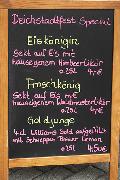 Deichstadtfest Special
Eiskönigin
Sekt auf Eis mit
hauseigenem Himbeerlikör
0,25l 4,-€
Froschkönig
Sekt auf Eis mit
hauseigenem Waldmeisterlikör
0,25l 4,-€
Goldjunge
4cl Williams Gold aufgefüllt
mit Schweppes Bitter Lemon
0,25l 4,50€